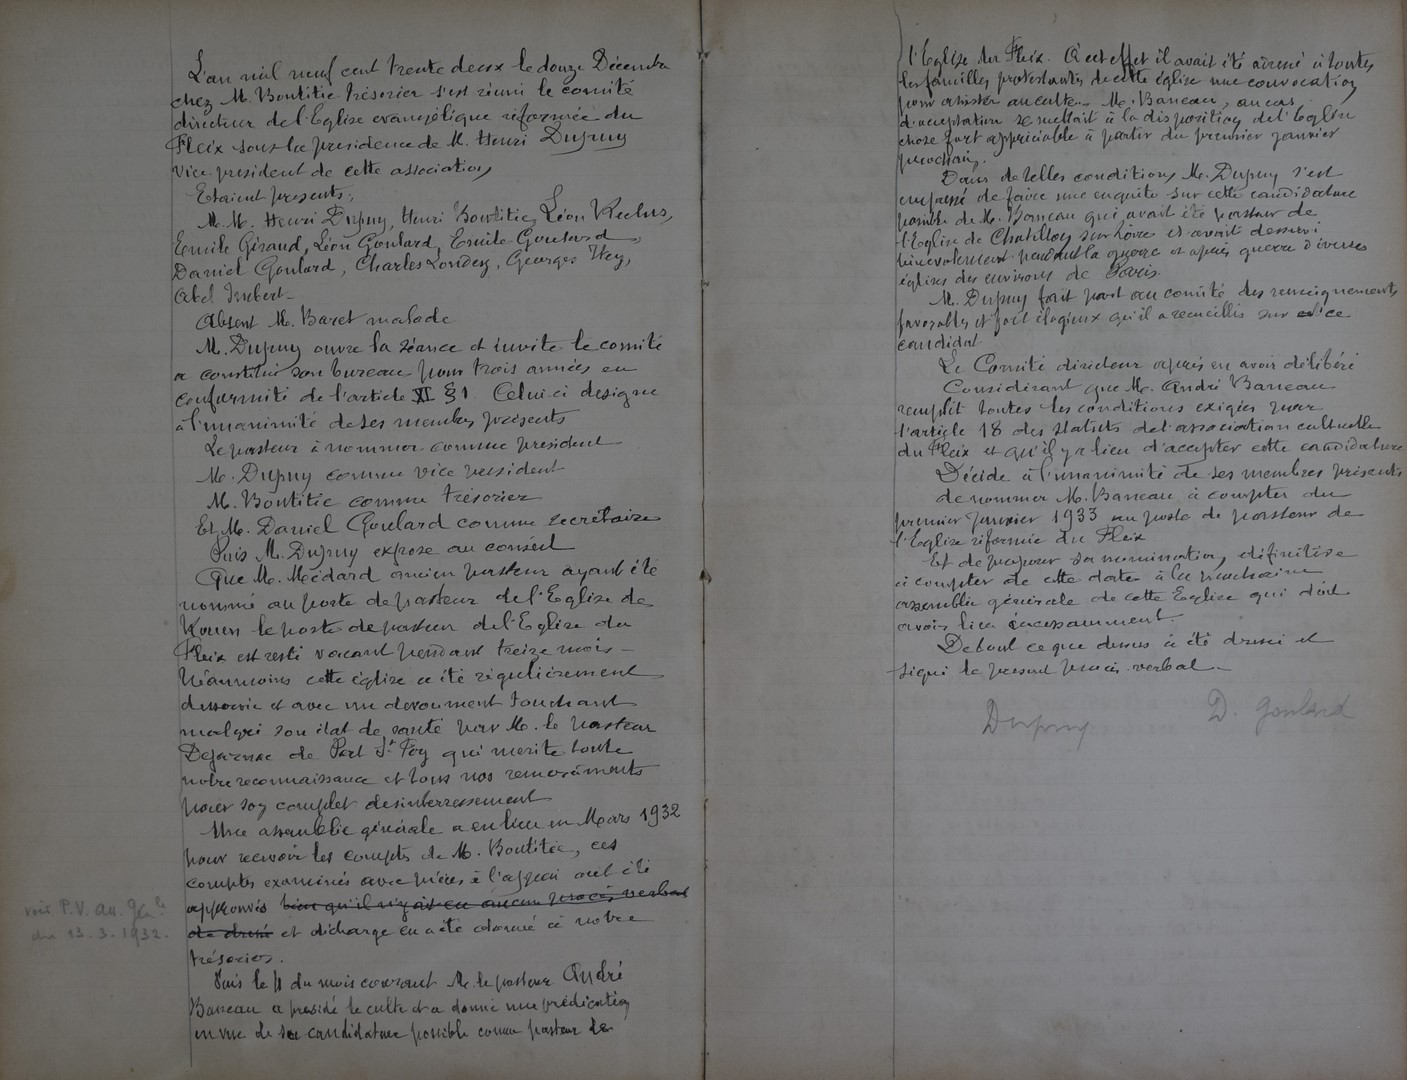 L'an mil neuf cent trente deux le douze Décembre
chez M. Boutitie trésorier s'est réuni le comité
directeur de l'Eglise evangélique réformée du
Fleix sous la presidence de M. Henri Dupuy
vice president de cette association
Etaient presents,
M.M. Henri Dupuy, Henri Boutitie, Léon Reclus,
Emile Giraud, Léon Goulard, Emile Goulard,
Daniel Goulard, Charles Loudey, Georges Hey,
Abel Imbert -
Absent M. Baret malade
M. Dupuy ouvre la séance et invite le comité
a constitué son bureau pour trois années en
conformité de l'article XI § 1. Celui ci designe
à l'unanimité de ses membres présents
Le pasteur à nommer comme president
M. Dupuy comme vice president
M. Boutitie comme trésorier
Et M. Daniel Goulard comme secrétaire
Puis M. Dupuy expose au conseil
Que M. Médard ancien pasteur ayant été
nommé au poste de pasteur de l'Eglise de
Rouen le poste de pasteur de l'Eglise du
Fleix est resté vacant pendant treize mois -
Néanmoins cette église a été régulièrement
desservie et avec un devoument touchant
malgré son état de santé par M. le pasteur
Dejarnac de Port Ste Foy qui merite toute
notre reconnaissance et tous nos remerciments
pour son complet desinterressement
Une assemblée générale a eu lieu en Mars 1932
pour recevoir les comptes de M. Boutitie, ces
comptes examinés avec pièces à l'appui ont été
approuvés bien qu'il n'y ait eu aucun procès verbal
de dressé et décharge en a été donnée à notre
trésorier.
voir P.V. au. gle
du 13.3.1932.
Puis le 11 du mois courant M. le pasteur André
Baneau a présidé le culte et a donné une prédication
en vue de sa candidature possible comme pasteur de
l'Eglise du Fleix. A cet effet il avait été adressé à toutes
les familles protestantes de cette église une convocation
pour assister au culte. M. Baneau, au cas
d'acceptation se mettait à la disposition de l'Eglise
chose fort appréciable à partir du premier janvier
prochain.
Dans de telles conditions M. Dupuy s'est
empressé de faire une enquête sur cette candidature
possible de M. Baneau qui avait été pasteur de
l'Eglise de Chatillon sur Loire et avait desservi
bénévolement pendant la guerre et après guerre diverses
églises des environs de Paris.
M. Dupuy fait part au comité des renseignements
favorables et fort élogieux qu'il a recueillis sur ce
candidat
Le Comité directeur après en avoir délibéré
Considérant que M. André Baneau
remplit toutes les conditions exigées par
l'article 18 des statuts de l'association cultuelle
du Fleix et qu'il y a lieu d'accepter cette candidature
Décide à l'unanimité de ses membres présents
de nommer M. Baneau à compter du
premier janvier 1933 au poste de pasteur de
l'Eglise réformée du Fleix
Et de proposer sa nomination définitive
à compter de cette date à la prochaine
assemblée générale de cette Eglise qui doit
avoir lieu incessamment.
De tout ce que dessus à été dressé et
signé le présent procès-verbal
Dupuy D. Goulard